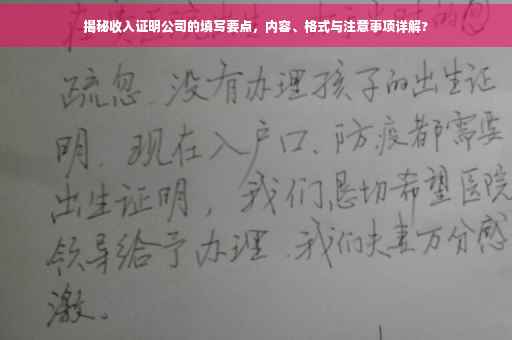 揭秘收入证明公司的填写要点，内容、格式与注意事项详解？
疏忽、没有办理孩子的出生证
明、现在入户口、防疫都需要
出生证明，我们恳切希望医院
领导给予办理、我们夫妻万分感
激。